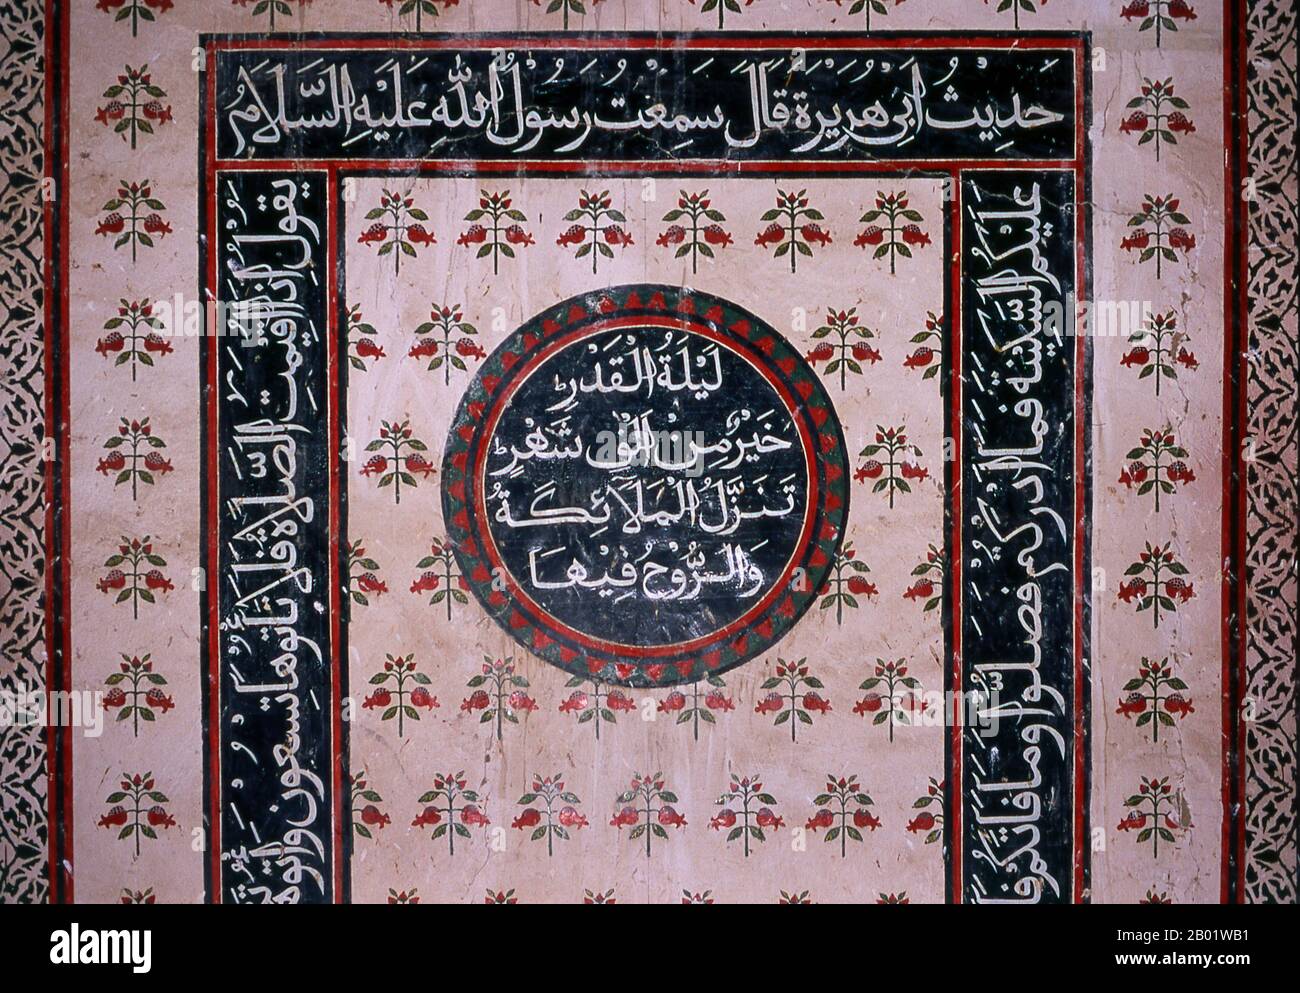 حَدِيثُ ابِي هُرَيْرَةَ قَالَ سَمِعْتُ رَسُولُ اللّٰه عَلَيْهِ السَّلَامُ
يَقُولُ اِذَا اُقِيمَتِ الصَّلَاةُ فَلَا تَأْتُوهَا تَسْعَوْنَ وَأْتُوهَا
عَلَيْكُمُ السَّكِينَةَ فَمَا ادْرَكْتُمْ فَصَلُّوا وَمَا فَاتَكُمْ
لَيْلَةُ الْقَدْرِ
خَيْرٌ مِنْ الْفِ شَهْرٍ
تَنَزَّلُ الْمَلَائِكَةُ
وَالرُّوْحُ فِيْهَا
alamy
Image ID: 2B01WB1
www.alamy.com